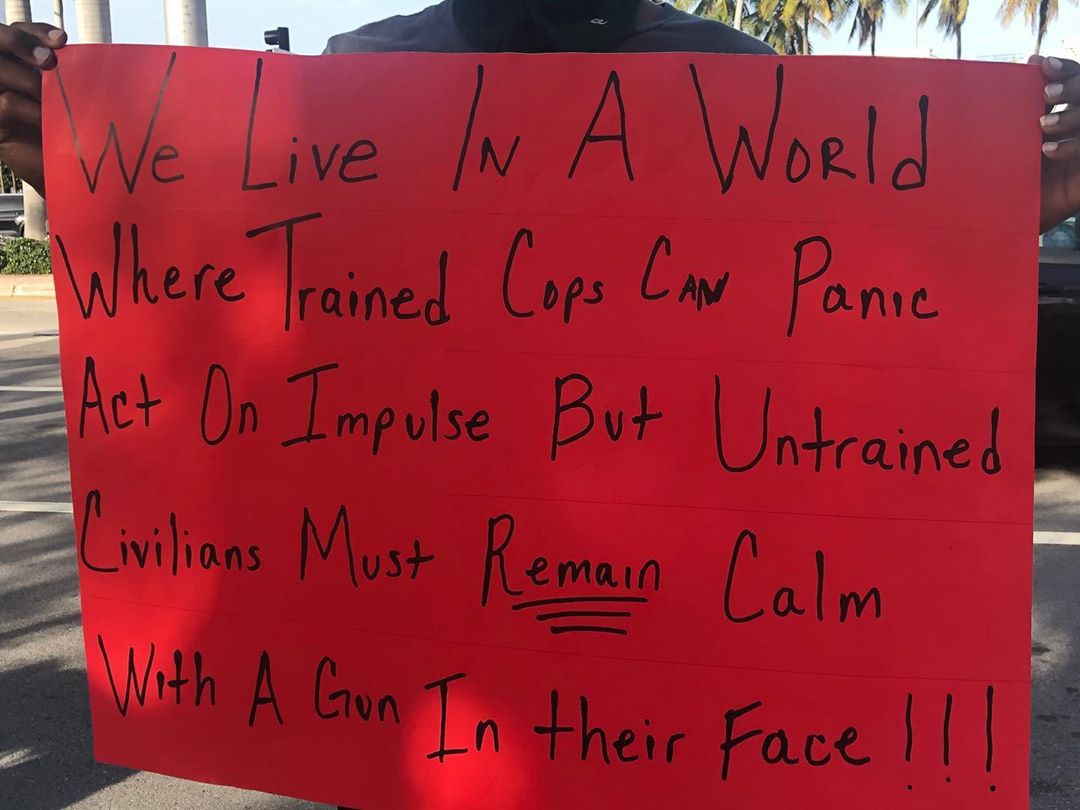 We Live In A World
Where Trained Cops Can Panic
Act On Impulse But Untrained
Civilians Must Remain Calm
With A Gun In their Face!!!